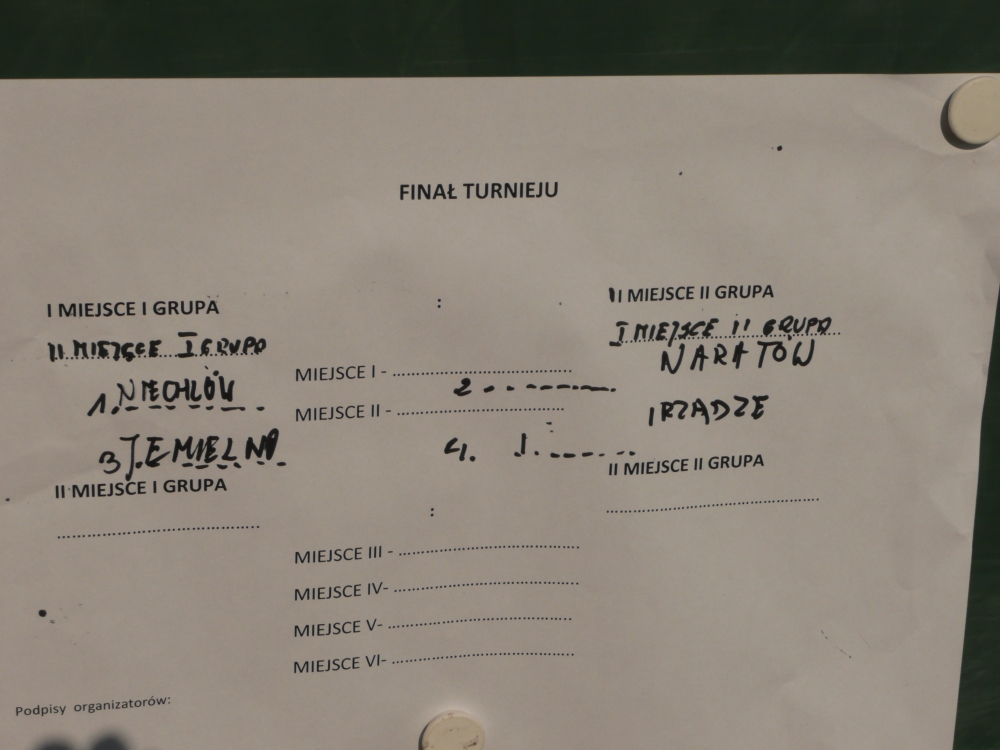 FINAŁ TURNIEJU
I MIEJSCE I GRUPA
:
II MIEJSCE II GRUPA
II MIEJSCE I GRUPA
I MIEJSCE II GRUPA
NARATÓW
MIEJSCE I - ........................................
1. NIECHLÓW
2
MIEJSCE II - ........................................
IRZĄDZE
3 JEMIELNO
4.
II MIEJSCE I GRUPA
II MIEJSCE II GRUPA
:
MIEJSCE III - ........................................
MIEJSCE IV- ........................................
MIEJSCE V- ........................................
MIEJSCE VI- ........................................
Podpisy organizatorów: